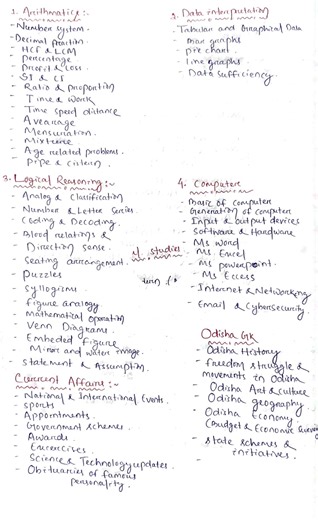 1. Arithmatics :-
- Number system.
- Decimal fraction
- HCF & LCM
- Percentage
- Profit & Loss.
- SI & CI
- Ratio & proportion
- Time & Work
- Time speed distance
- Avearage
- Mensuration.
- Mixture
- Age related problems.
- Pipe & cistern.
2. Data interpretation
- Tabular and Graphical Data
- Bar graphs
- pie chart
- line graphs
- Data Sufficiency.
3. Logical Reasoning :-
- Analog & Classification
- Number & Letter Series.
- Coding & Decoding.
- Blood relations &
- Direction sense.
- Seating arrangement.
- Puzzles
- Syllogism
- figure analogy
- Mathematical operation
- Venn Diagrams.
- Embeded figure
- Mirror and water image.
- Statement & Assumption.
studies
4. Computer
- Basic of computer
- Generation of computer
- Input & output devices
- Software & Hardware
- Ms Word
- Ms Excel
- Ms powerpoint.
- Ms Eccess
- Internet & Networking
- Email & cybersecurity.
Current Affairs :-
- National & International Events.
- sports
- Appointments.
- Government schemes.
- Awards
- Excercises
- Science & Technology updates.
- Obituaries of famous
personality.
Odisha GK
- Odisha History
- freedom struggle &
movements in Odisha
- Odisha Art & Culture
- Odisha geography
- Odisha Economy.
(Budget & Economic Survey
- state schemes &
initiatives.